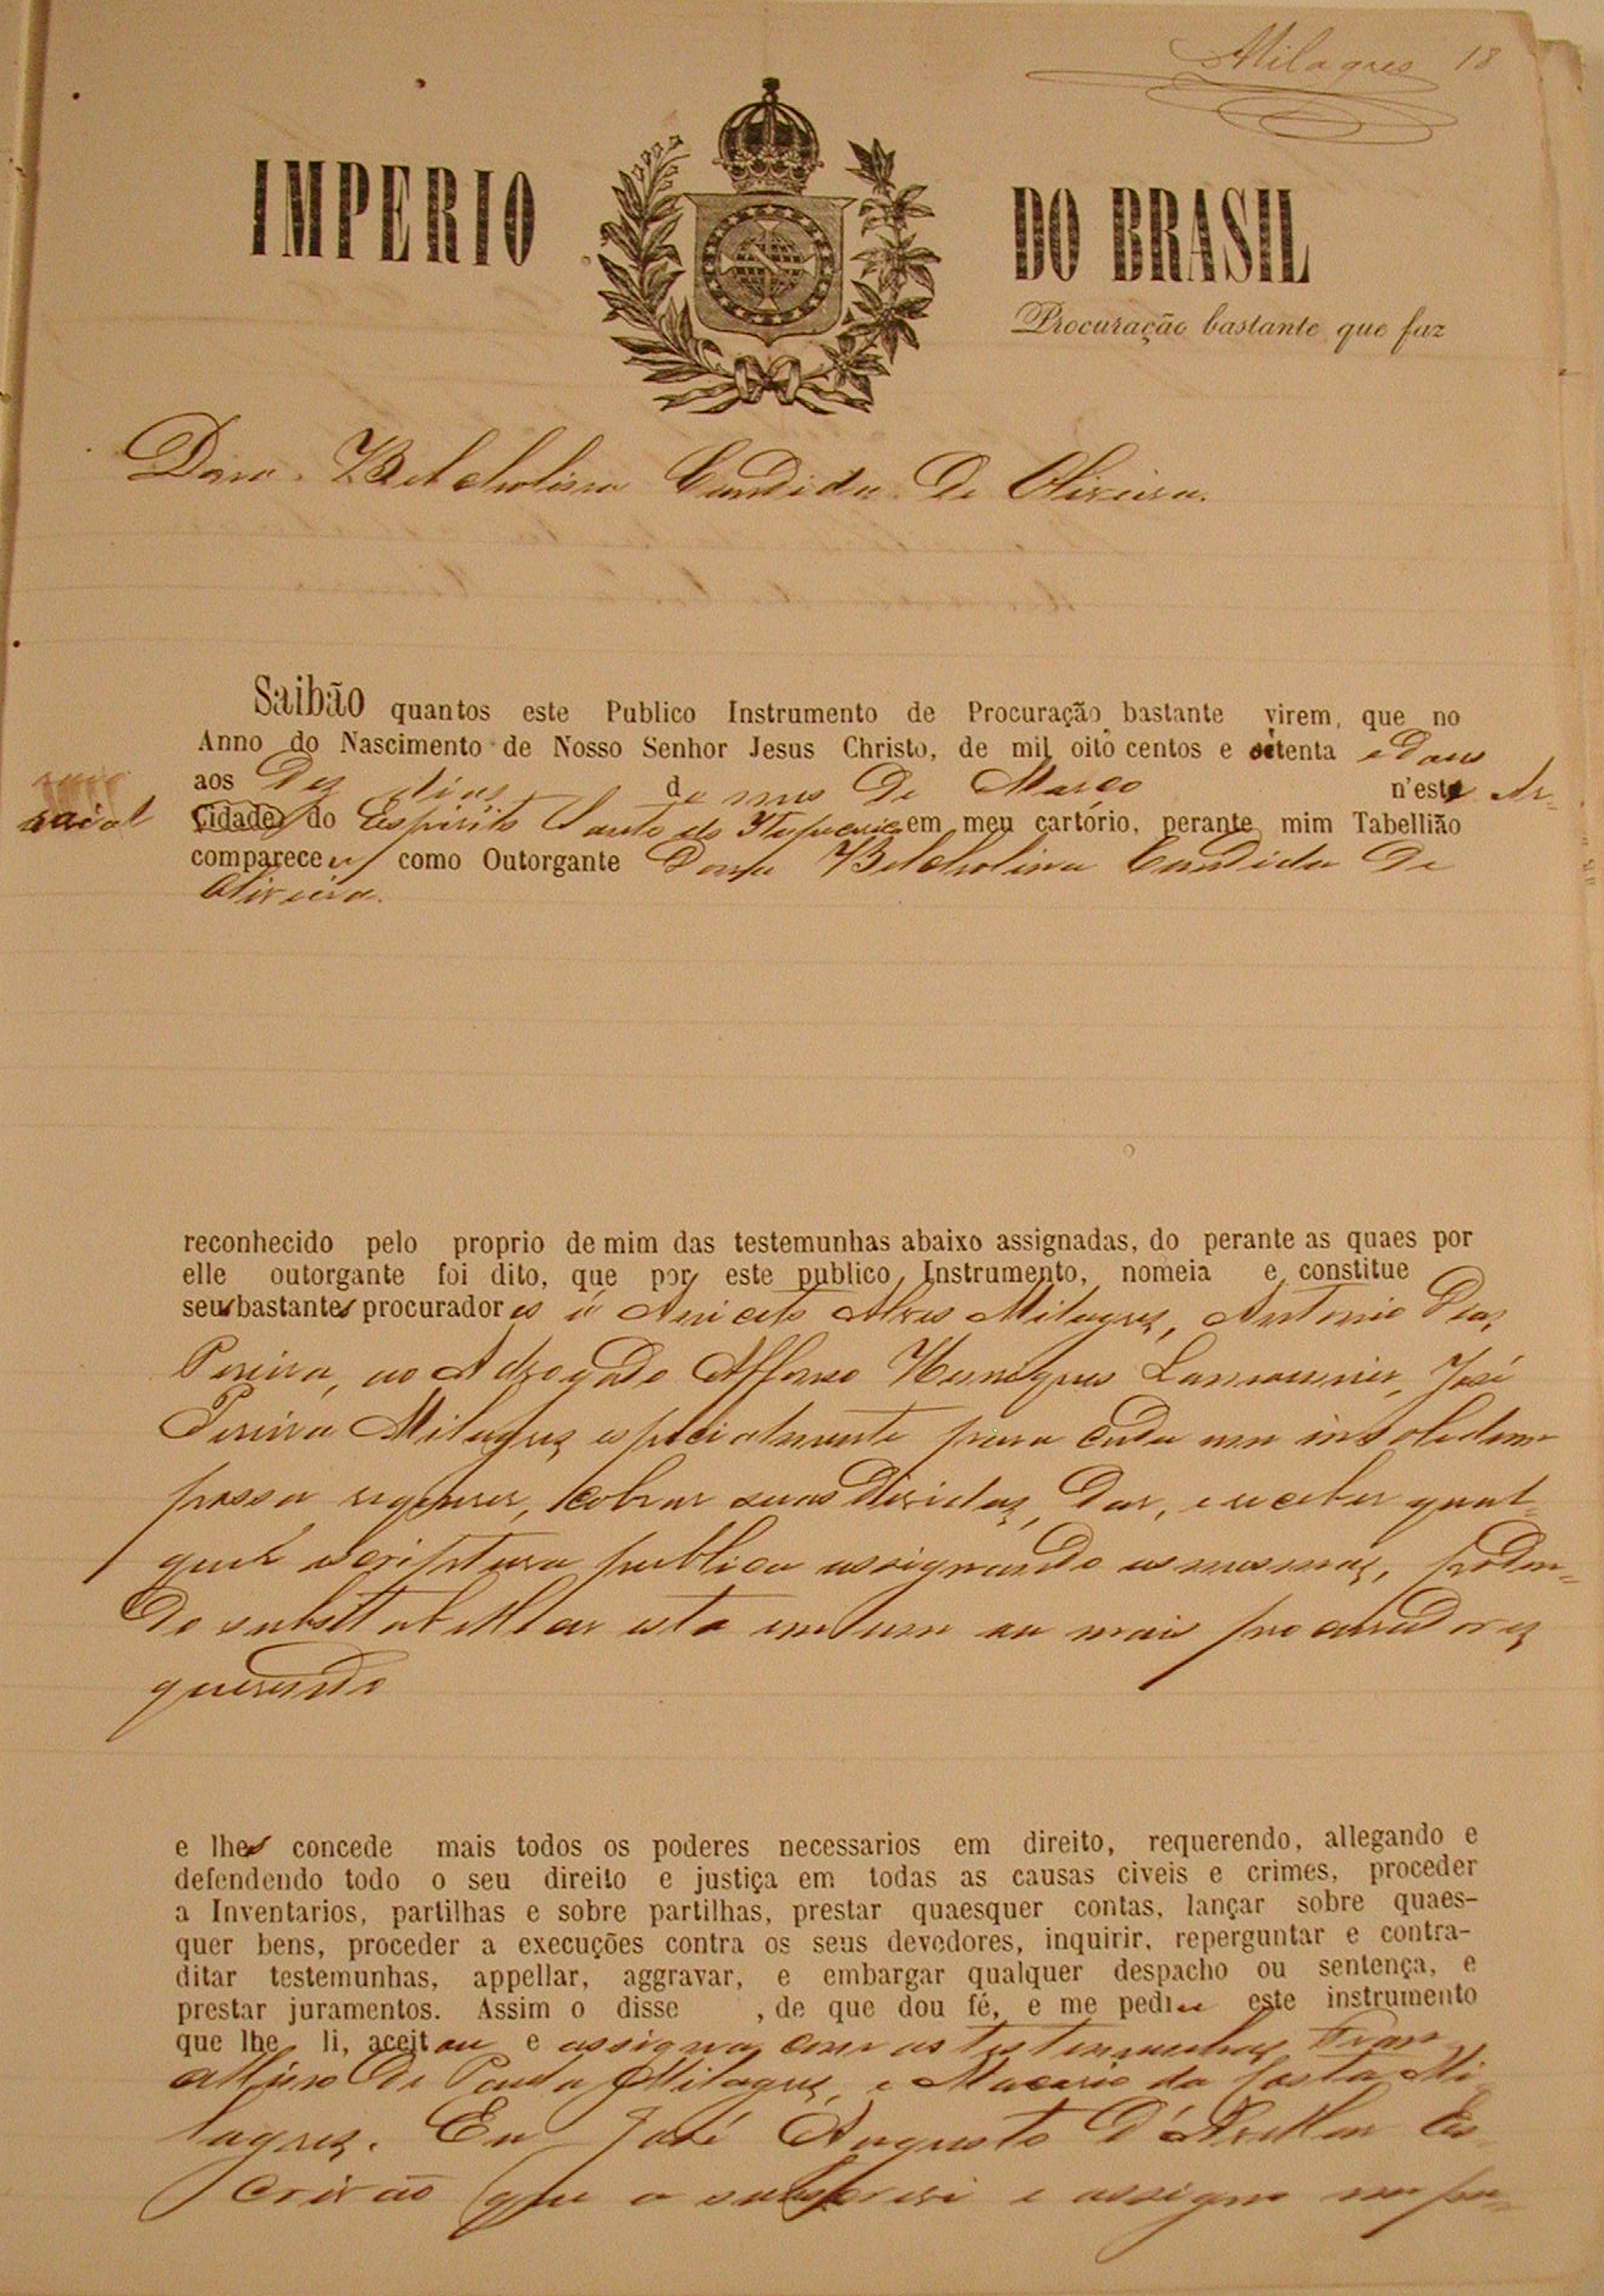 Milagres 18
IMPERIO DO BRASIL
Procuração bastante que faz
Dona Belcholina Candida de Oliveira.
Saibão quantos este Publico Instrumento de Procuração bastante virem, que no
Anno do Nascimento de Nosso Senhor Jesus Christo, de mil oito centos e setenta e dous
aos Dez dias do mes de Março n'este Ar-
raial Cidade do Espirito Santo do Itapecerica em meu cartório, perante mim Tabellião
compareceu como Outorgante Dona Belcholina Candida de
Oliveira.
reconhecido pelo proprio de mim das testemunhas abaixo assignadas, do perante as quaes por
elle outorgante foi dito, que por este publico Instrumento, nomeia e constitue
seus bastantes procuradores a Aniceto Alves Milagres, Antonio Dias
Pereira, ao Advogado Affonso Henriques Lamounier, José
Pereira Milagres especialmente para cada um in solidum
possa requerer, cobrar suas dividas, dar, e receber qual-
quer escriptura publica assignando as mesmas, poden-
do substtabellecer esta em um ou mais procuradores
querendo
e lhes concede mais todos os poderes necessarios em direito, requerendo, allegando e
defendendo todo o seu direito e justiça em todas as causas civeis e crimes, proceder
a Inventarios, partilhas e sobre partilhas, prestar quaesquer contas, lançar sobre quaes-
quer bens, proceder a execuções contra os seus devedores, inquirir, reperguntar e contra-
ditar testemunhas, appellar, aggravar, e embargar qualquer despacho ou sentença, e
prestar juramentos. Assim o disse , de que dou fé, e me pediu este instrumento
que lhe li, aceitou e assigna com as testemunhas
de Paula Milagres, e Macario da Costa Mi
lagres. Eu José Augusto d'Avellar Es-
crivão que o subscrevi e assigno